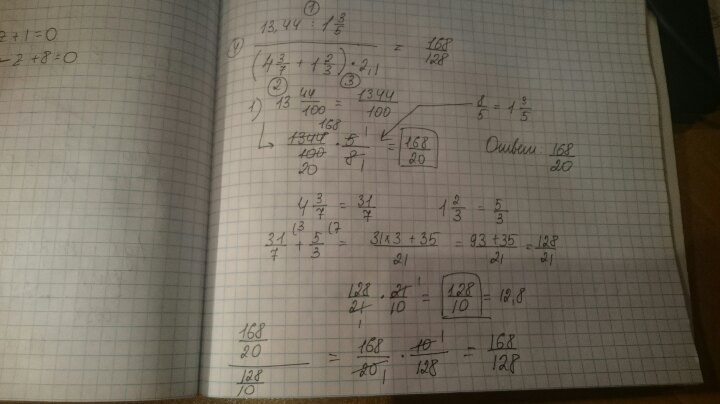 z + 1 = 0
- z + 8 = 0
y) (13,44 : 1 3/5) / ((4 3/7 + 1 2/3) · 2,1) = 168/128
1 2 3
1) 13 44/100 = 1344/100
8/5 = 1 3/5
1344/100 · 5/8 = 168/20
168 20 1 1
Ответ 168/20
4 3/7 = 31/7 1 2/3 = 5/3
31/7 (3 + 5/3 (7 = (31×3+35)/21 = (93+35)/21 = 128/21
128/21 · 21/10 = 128/10 = 12,8
1 1
(168/20) / (128/10) = 168/20 · 10/128 = 168/128
1 1